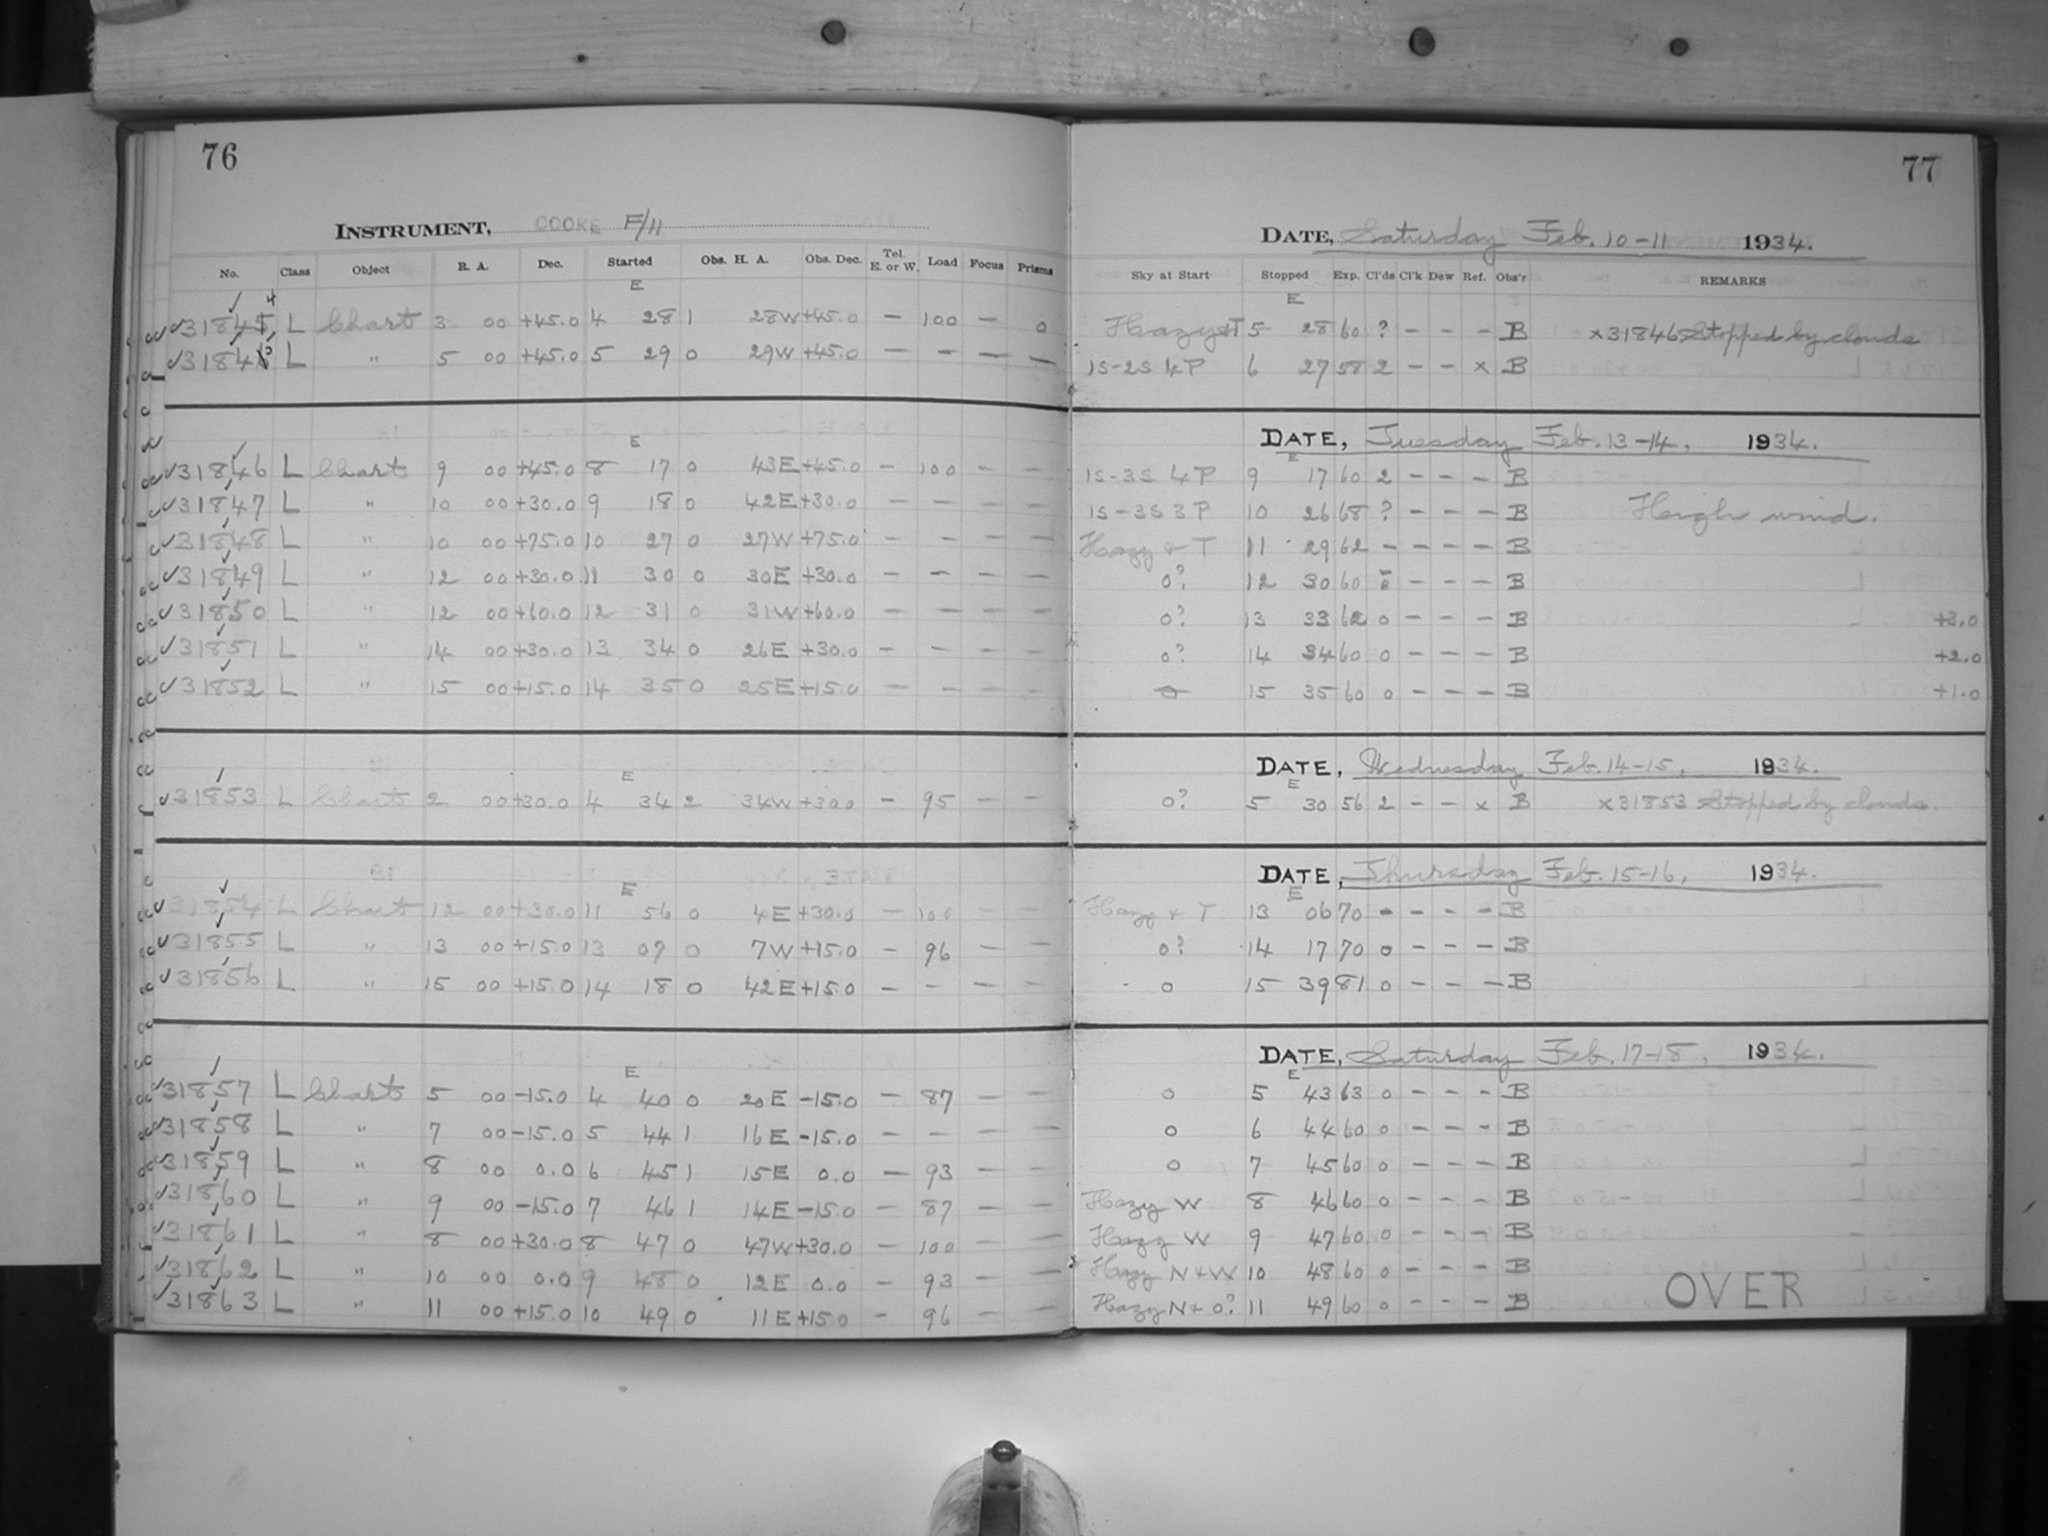 76
INSTRUMENT, COOKE F/11
No. Class Object R. A. Dec. Started Obs. H. A. Obs. Dec. Tel. E. or W. Load Focus Prisms
E
31845 4 L Chart 3 00 +45.0 4 28 1 28W +45.0 — 100 — 0
3184 5 L " 5 00 +45.0 5 29 0 29W +45.0 — — — —
E
31846 L Chart 9 00 +45.0 8 17 0 43E +45.0 — 100 — —
31847 L " 10 00 +30.0 9 18 0 42E +30.0 — — — —
31848 L " 10 00 +75.0 10 27 0 27W +75.0 — — — —
31849 L " 12 00 +30.0 11 30 0 30E +30.0 — — — —
31850 L " 12 00 +60.0 12 31 0 31W +60.0 — — — —
31851 L " 14 00 +30.0 13 34 0 26E +30.0 — — — —
31852 L " 15 00 +15.0 14 35 0 25E +15.0 — — — —
E
31853 L Chart 2 00 +30.0 4 34 2 34W +30.0 — 95 — —
E
31854 L Chart 12 00 +30.0 11 56 0 4E +30.0 — 100 — —
31855 L " 13 00 +15.0 13 07 0 7W +15.0 — 96 — —
31856 L " 15 00 +15.0 14 18 0 42E +15.0 — — — —
E
31857 L Chart 5 00 -15.0 4 40 0 20E -15.0 — 87 — —
31858 L " 7 00 -15.0 5 44 1 16E -15.0 — — — —
31859 L " 8 00 0.0 6 45 1 15E 0.0 — 93 — —
31860 L " 9 00 -15.0 7 46 1 14E -15.0 — 87 — —
31861 L " 8 00 +30.0 8 47 0 47W +30.0 — 100 — —
31862 L " 10 00 0.0 9 48 0 12E 0.0 — 93 — —
31863 L " 11 00 +15.0 10 49 0 11E +15.0 — 96 — —
77
DATE, Saturday Feb. 10-11 1934.
Sky at Start Stopped Exp. Cl'ds Cl'k Dew Ref. Obs'r REMARKS
E
Hazy+T 5 28 60 ? — — — B x31846 Stopped by clouds
1S-2S 4P 6 27 58 2 — — x B
DATE, Tuesday Feb. 13-14, 1934.
E
1S-3S 4P 9 17 60 2 — — — B
1S-3S 3P 10 26 68 ? — — — B High wind.
Hazy + T 11 29 62 — — — — B
0? 12 30 60 — — — B
0? 13 33 62 0 — — — B +3.0
0? 14 34 60 0 — — — B +2.0
0 15 35 60 0 — — — B +1.0
DATE, Wednesday Feb. 14-15, 1934.
E
0? 5 30 56 2 — — x B x31853 Stopped by clouds.
DATE, Thursday Feb. 15-16, 1934.
E
Hazy + T 13 06 70 — — — — B
0? 14 17 70 0 — — — B
0 15 39 81 0 — — — B
DATE, Saturday Feb. 17-18, 1934.
E
0 5 43 63 0 — — — B
0 6 44 60 0 — — — B
0 7 45 60 0 — — — B
Hazy W 8 46 60 0 — — — B
Hazy W 9 47 60 0 — — — B
Hazy N+W 10 48 60 0 — — — B
Hazy N+0? 11 49 60 0 — — — B
OVER